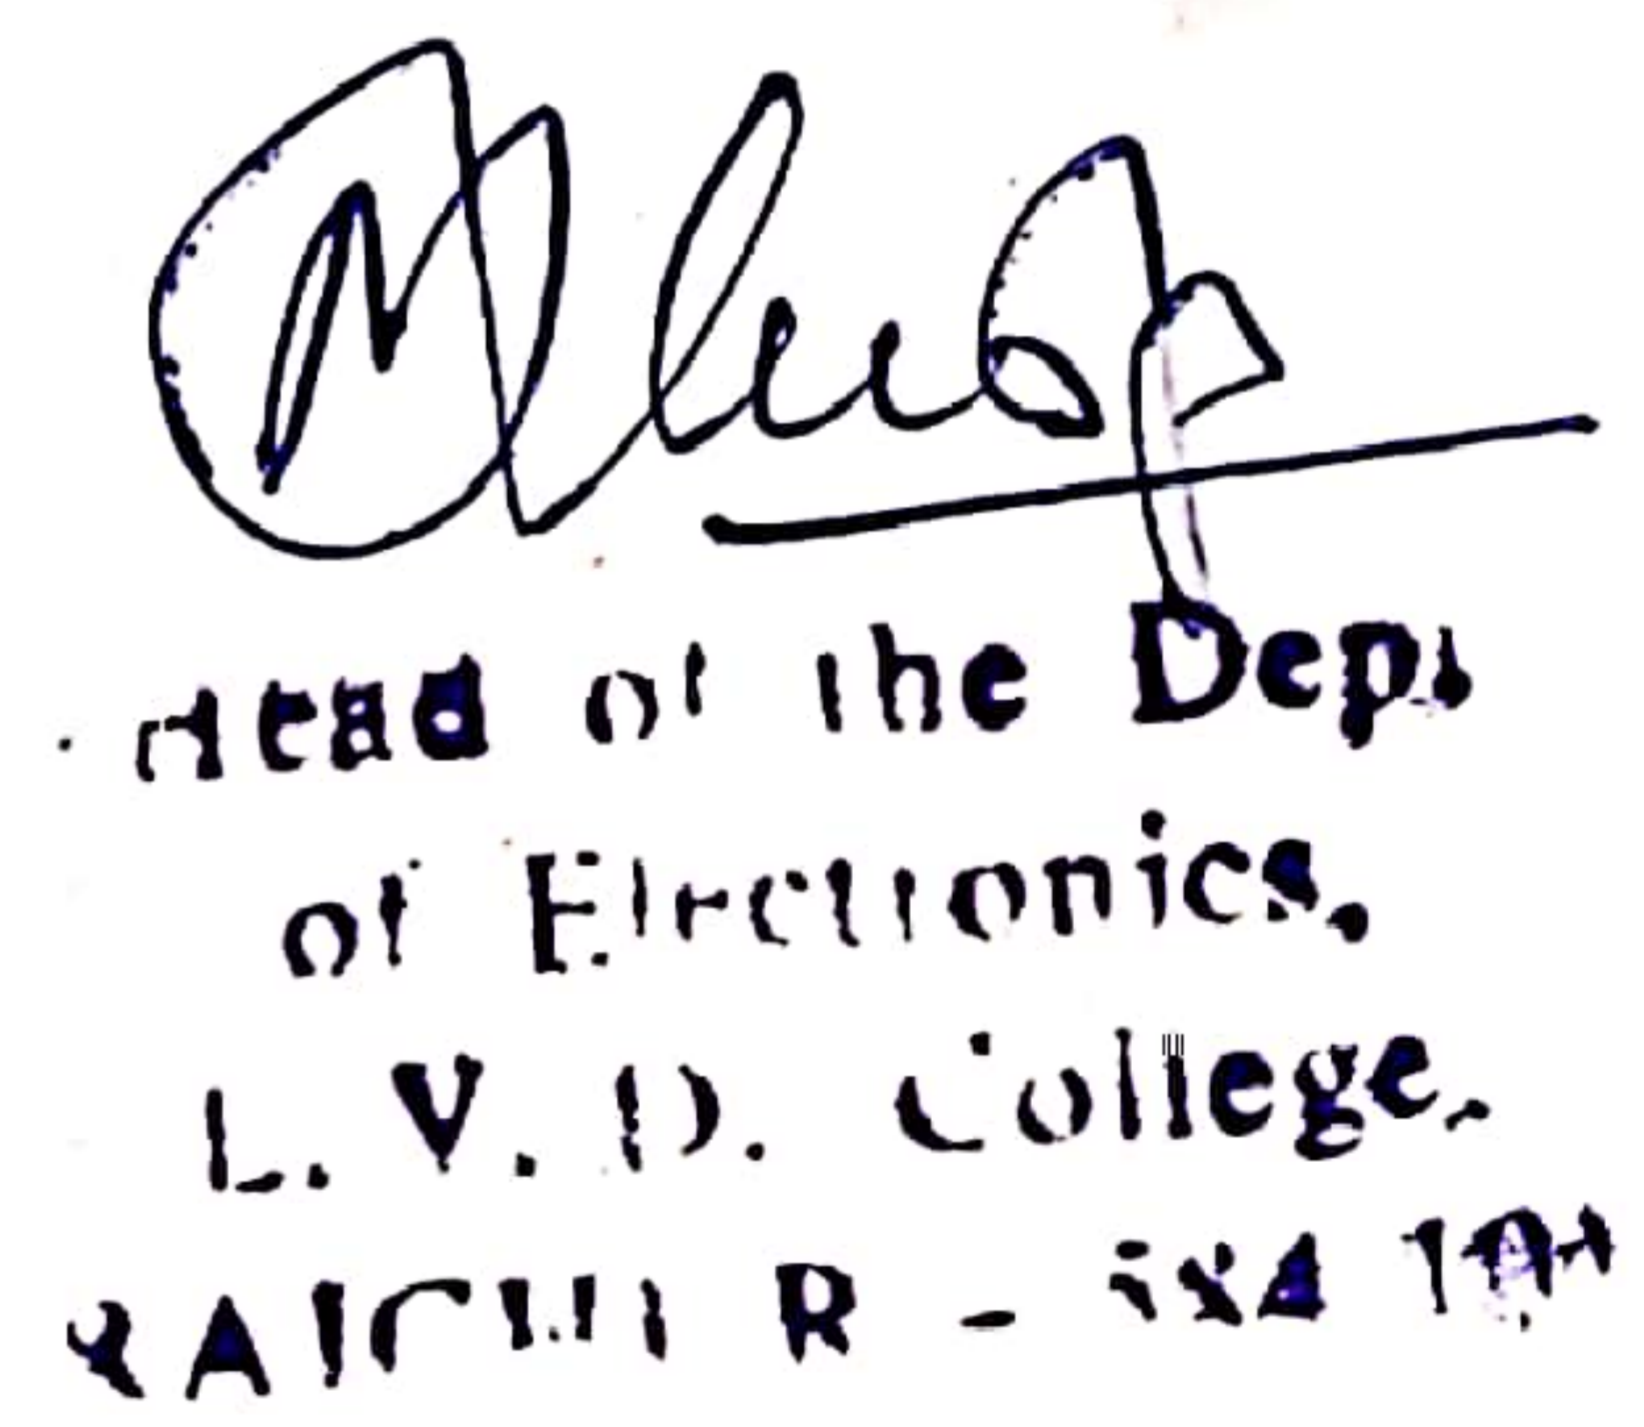 Head of the Dept
of Electronics,
L. V. D. College,
RAICHUR - 584 10